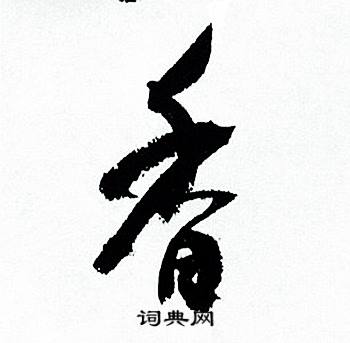 香
词典网